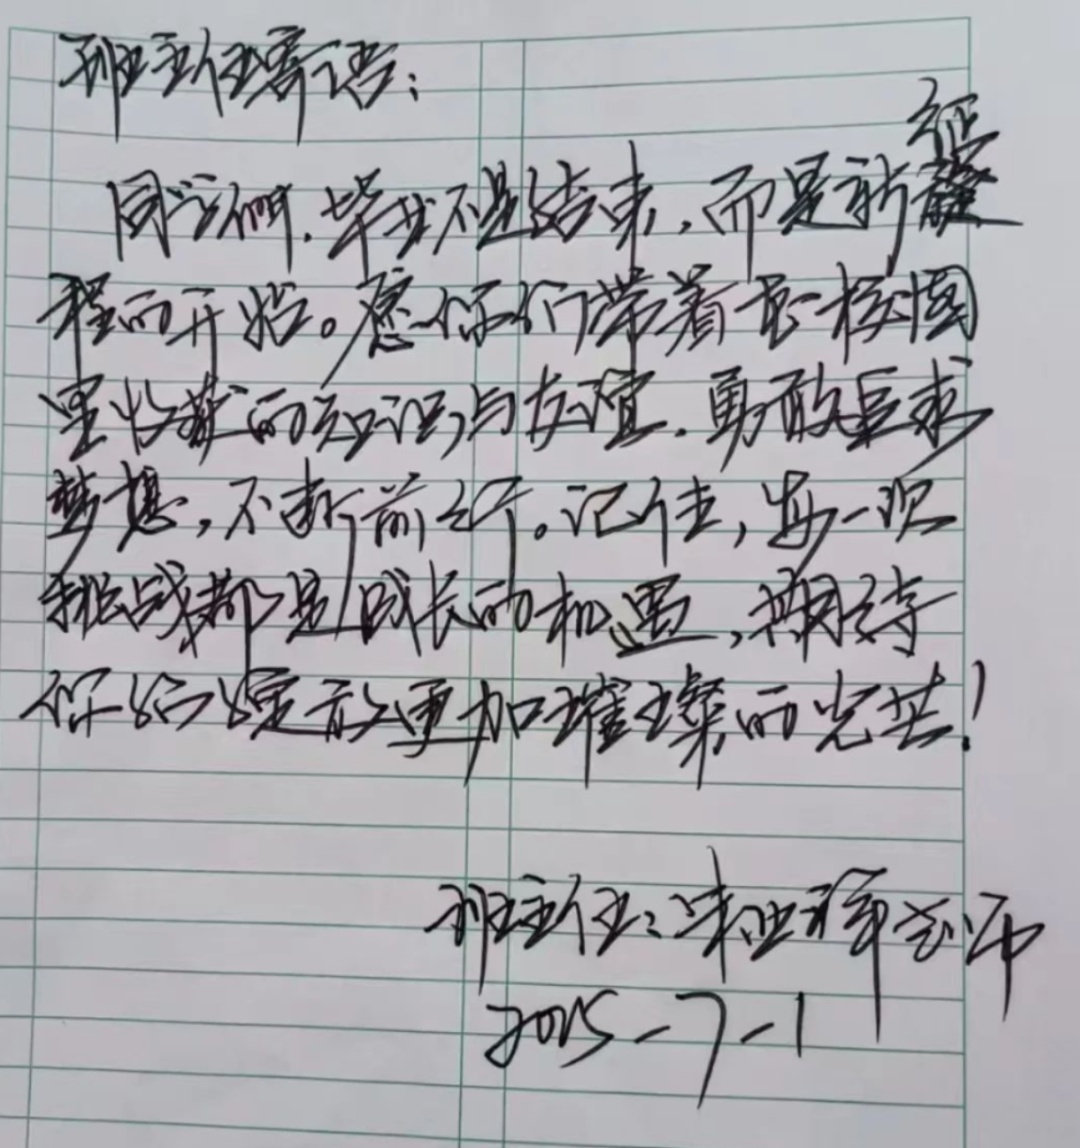 班主任寄语：
同学们，毕业不是结束，而是新征
程的开始。愿你们带着在校园
里收获的知识与友谊，勇敢追求
梦想，不断前行。记住，每一次
挑战都是成长的机遇，期待
你们绽放更加璀璨的光芒！
班主任：
2025-7-1